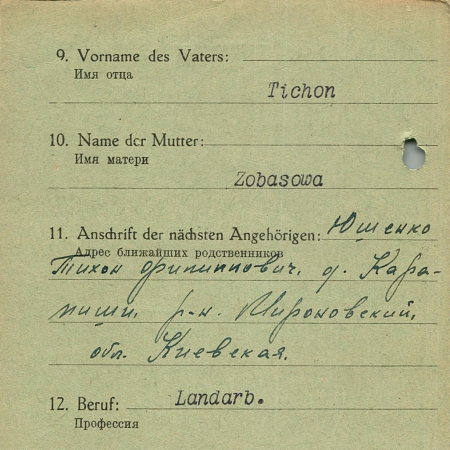 9. Vorname des Vaters:
Имя отца
Tichon
10. Name der Mutter:
Имя матери
Zobasowa
11. Anschrift der nächsten Angehörigen: Ющенко
Адрес ближайших родственников
Тихон Филиппович, д. Кара-
пиши, р-н. Мироновский,
обл. Киевская.
12. Beruf: Landarb.
Профессия